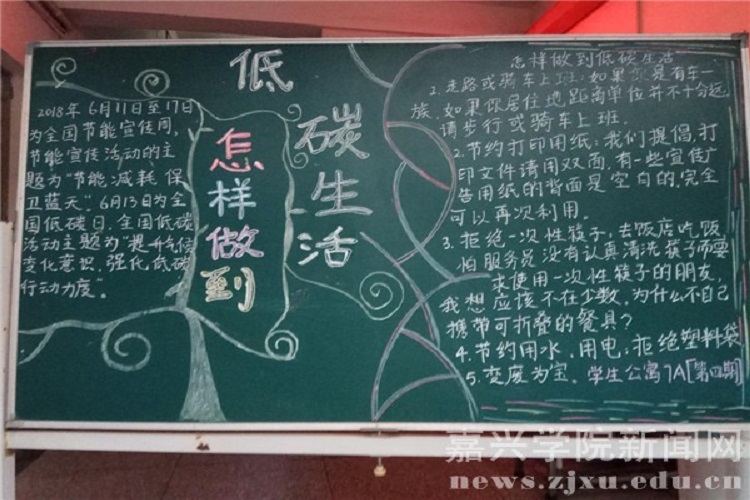 低
碳
生
活
怎
样
做
到
2018年6月11日至17日
为全国节能宣传周,
节能宣传活动的主
题为"节能减耗 保
卫蓝天"。6月13日为全
国低碳日,全国低碳
活动主题为"提升气候
变化意识,强化低碳
行动力度"。
怎样做到低碳生活
1.走路或骑车上班:如果你是有车一
族,如果你居住地距离单位并不十分远,
请步行或骑车上班.
2.节约打印用纸:我们提倡,打
印文件请用双面,有一些宣传广
告用纸的背面是空白的,完全
可以再次利用。
3.拒绝一次性筷子,去饭店吃饭
怕服务员没有认真清洗筷子而要
求使用一次性筷子的朋友,
我想应该不在少数,为什么不自己
携带可折叠的餐具?
4.节约用水、用电;拒绝塑料袋
5.变废为宝. 学生公寓7A[第四期]
嘉兴学院新闻网
news.zjxu.edu.cn